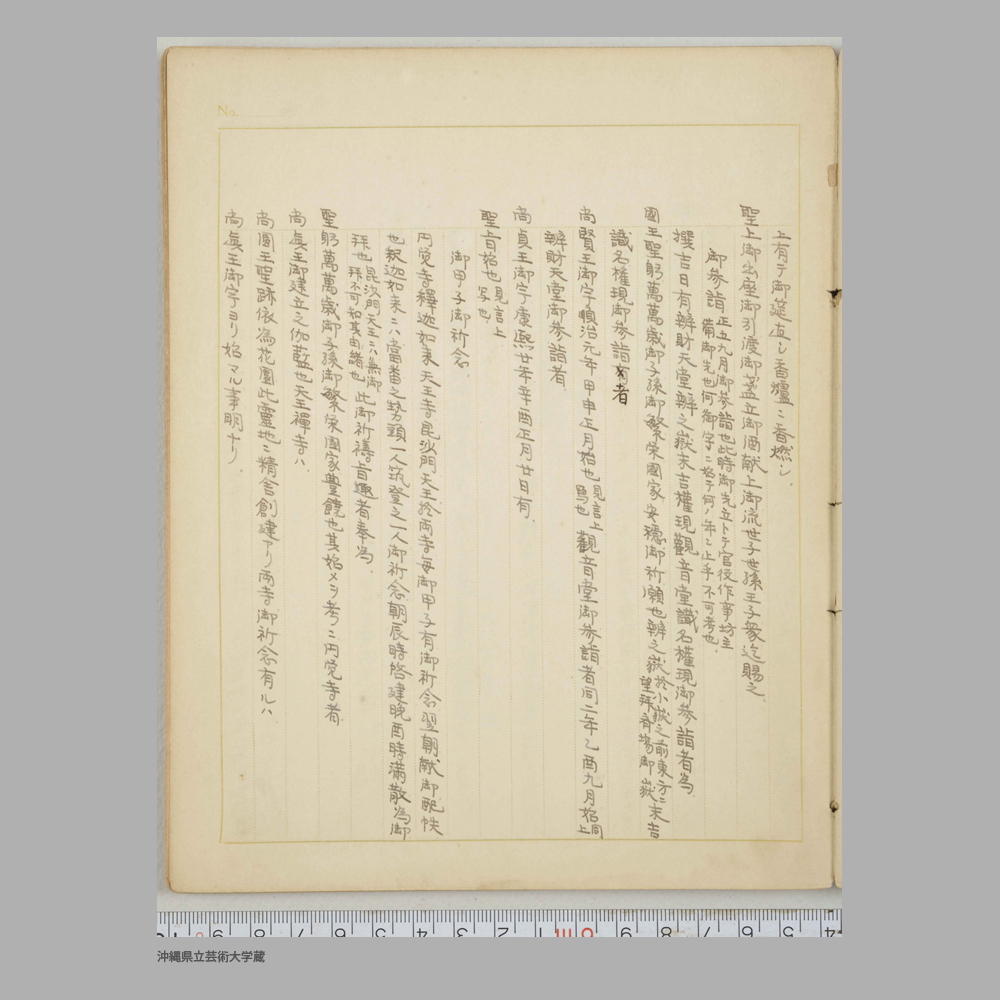 No.
上有テ御筵直シ香爐ニ香燃シ.
聖上御出座御引渡御盃立御酒献上御流世子世孫王子衆迄賜之.
御参詣 正五九月御参詣也此時御先立トテ官役作事坊主
備御先也何御字ニ始テ何ノ年ニ止乎不可考也.
撰吉日有辨財天堂辨之嶽末吉權現觀音堂識名權現御参詣者為.
國王聖躬萬萬歳御子孫御繁栄國家安穏御祈願也辨之嶽於小嶽之前東方ニ末吉
望拝有場御嶽
識名權現御参詣者
尚賢王御字順治元年甲申正月始也 見言上
寫也 觀音堂御参詣者同二年乙酉九月始 同
上
辨財天堂御参詣者.
尚貞王御字康熙廿年辛酉正月廿日有.
聖旨始也 見言上
写也.
御甲子御祈念.
円覚寺釋迦如来天王寺毘沙門天王於両寺毎御甲子有御祈念翌朝献御配帙
也釈迦如来ニハ當番之勢頭一人筑登之一人御祈念朝辰時啓建晩酉時満散為御
拝也 毘沙門天王ニハ無御
拝不可知其由諸也 此御祈禱旨趣者奉為.
聖躬萬萬歳御子孫御繁栄國家豊饒也其始メヲ考ニ円覚寺者.
尚真王御建立之伽藍也天王禪寺ハ.
尚圓王聖跡依為花園此靈地ニ精舎創建アリ両寺御祈念有ルハ
尚真王御字ヨリ始マル事明ナリ.
沖縄県立芸術大学蔵